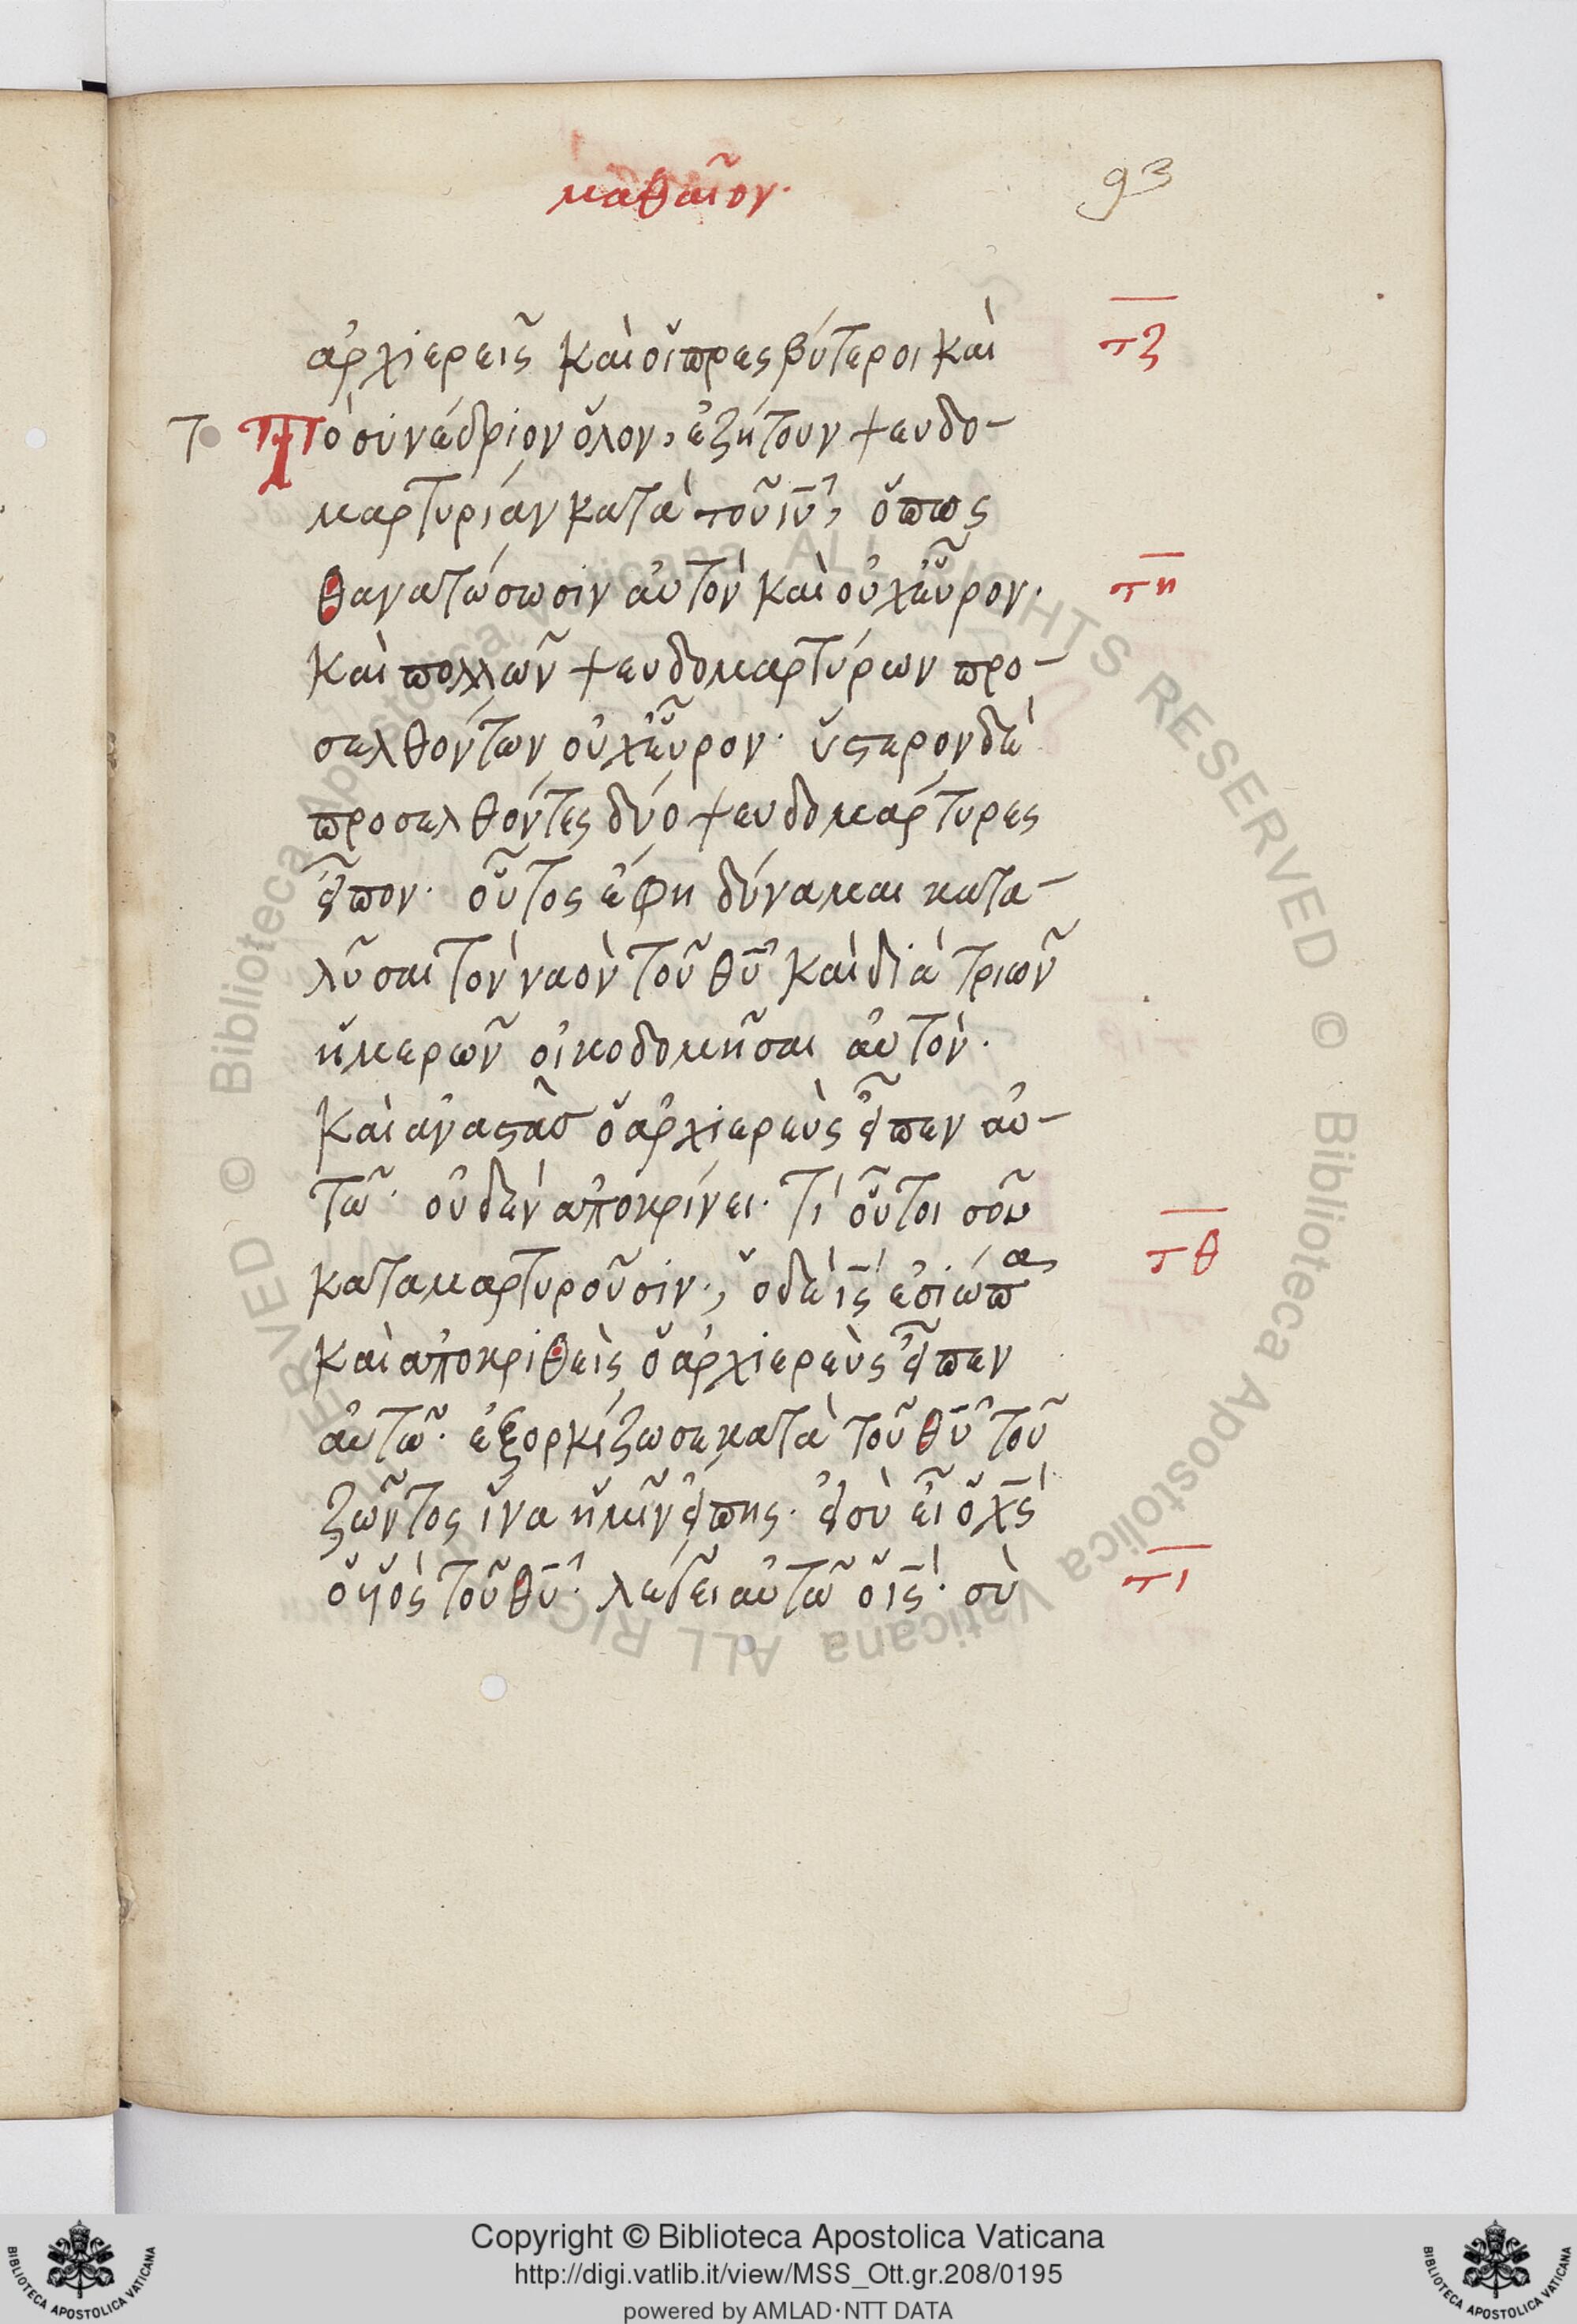 μαθαῖον·
93
ἀρχιερεῖς καὶ οἱ πρεσβύτεροι καὶ
τζ
το
Τὸ συνέδριον ὅλον, ἐζήτουν ψευδο-
μαρτυρίαν κατὰ τοῦ ἰῦ, ὅπως
θανατώσωσιν αὐτὸν καὶ οὐχ εὗρον·
τη
καὶ πολλῶν ψευδομαρτύρων προ-
σελθόντων οὐχ εὗρον· ὕστερον δὲ
προσελθόντες δύο ψευδομάρτυρες
εἶπον· οὗτος ἔφη δύναμαι κατα-
λῦσαι τὸν ναὸν τοῦ θῦ καὶ διὰ τριῶν
ἡμερῶν οἰκοδομῆσαι αὐτόν·
καὶ ἀναστὰσ ὁ ἀρχιερεὺς εἶπεν αὐ-
τῶ· οὐδὲν ἀποκρίνει· τί οὗτοι σοῦ
καταμαρτυροῦσιν·, ὁ δὲ ἰς ἐσιώπα
τθ
καὶ ἀποκριθεὶς ὁ ἀρχιερεὺς εἶπεν
αὐτῶ· ἐξορκίζω σε κατὰ τοῦ θῦ τοῦ
ζῶντος ἵνα ἡμῖν εἴπης· εἰ σὺ εἶ ὁ χς
ὁ ὑιὸς τοῦ θῦ· λέγει αὐτῶ ὁ ἰς· σὺ
τι
Copyright © Biblioteca Apostolica Vaticana
http://digi.vatlib.it/view/MSS_Ott.gr.208/0195
powered by AMLAD·NTT DATA